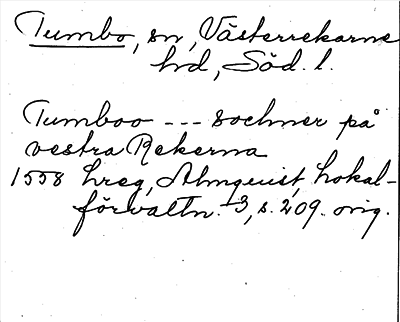 Tumbo, sn, Västerrekarne
hd, Söd. l.
Tumboo --- sochner på
vestra Rekerna
1558 hreg, Almquist, Lokal-
förvaltn. 3, s. 209. orig.